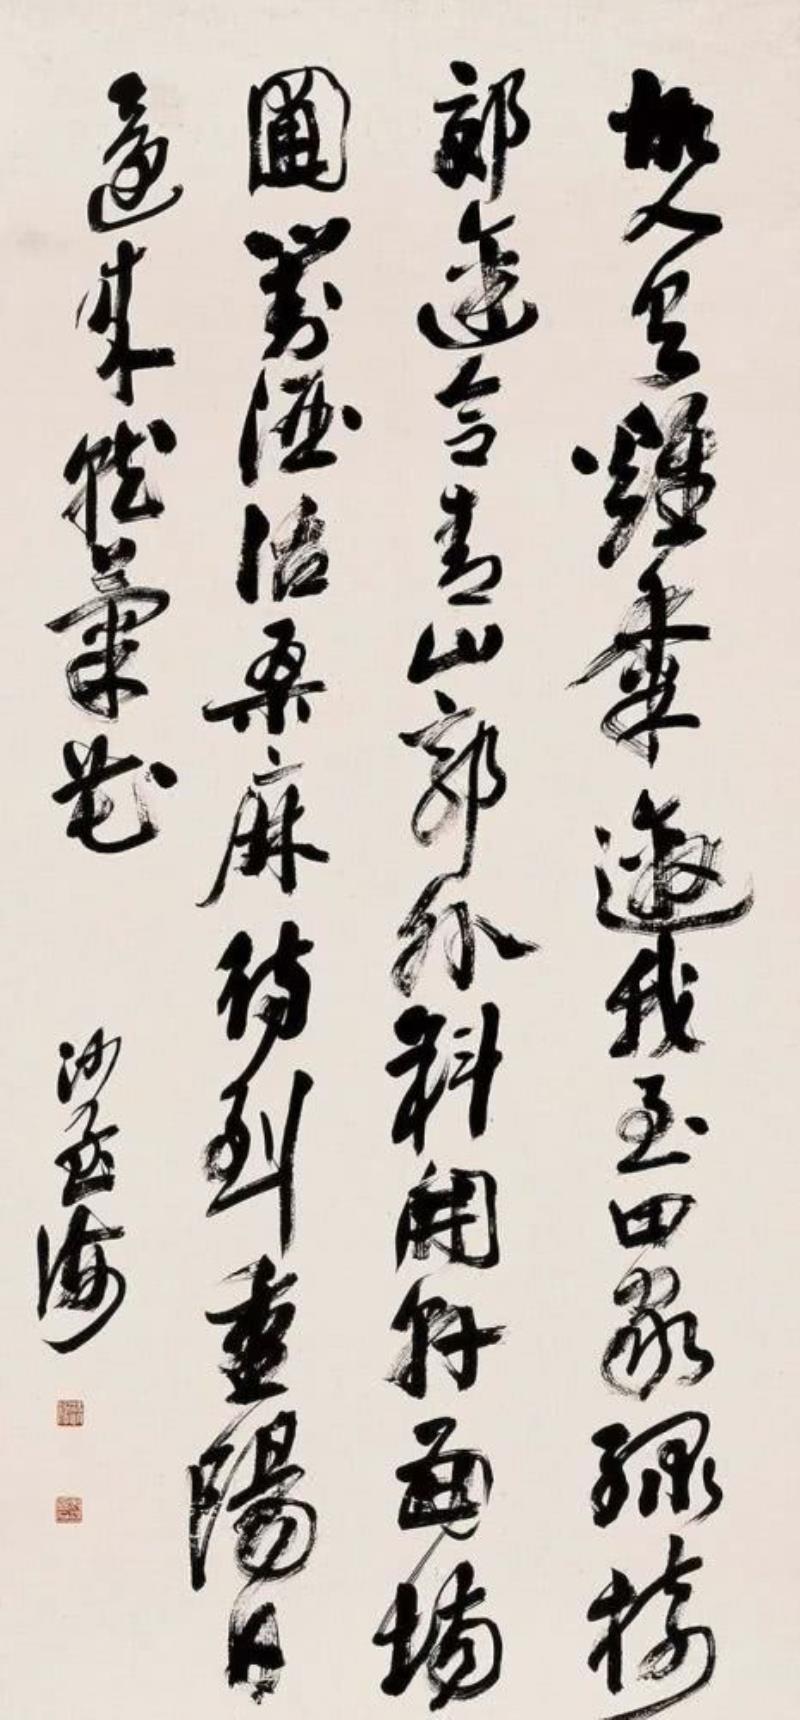 故人具雞黍邀我至田家綠樹
邨邊合青山郭外斜開軒面場
圃對酒話桑麻待到重陽日
還來就菊花
沙孟海